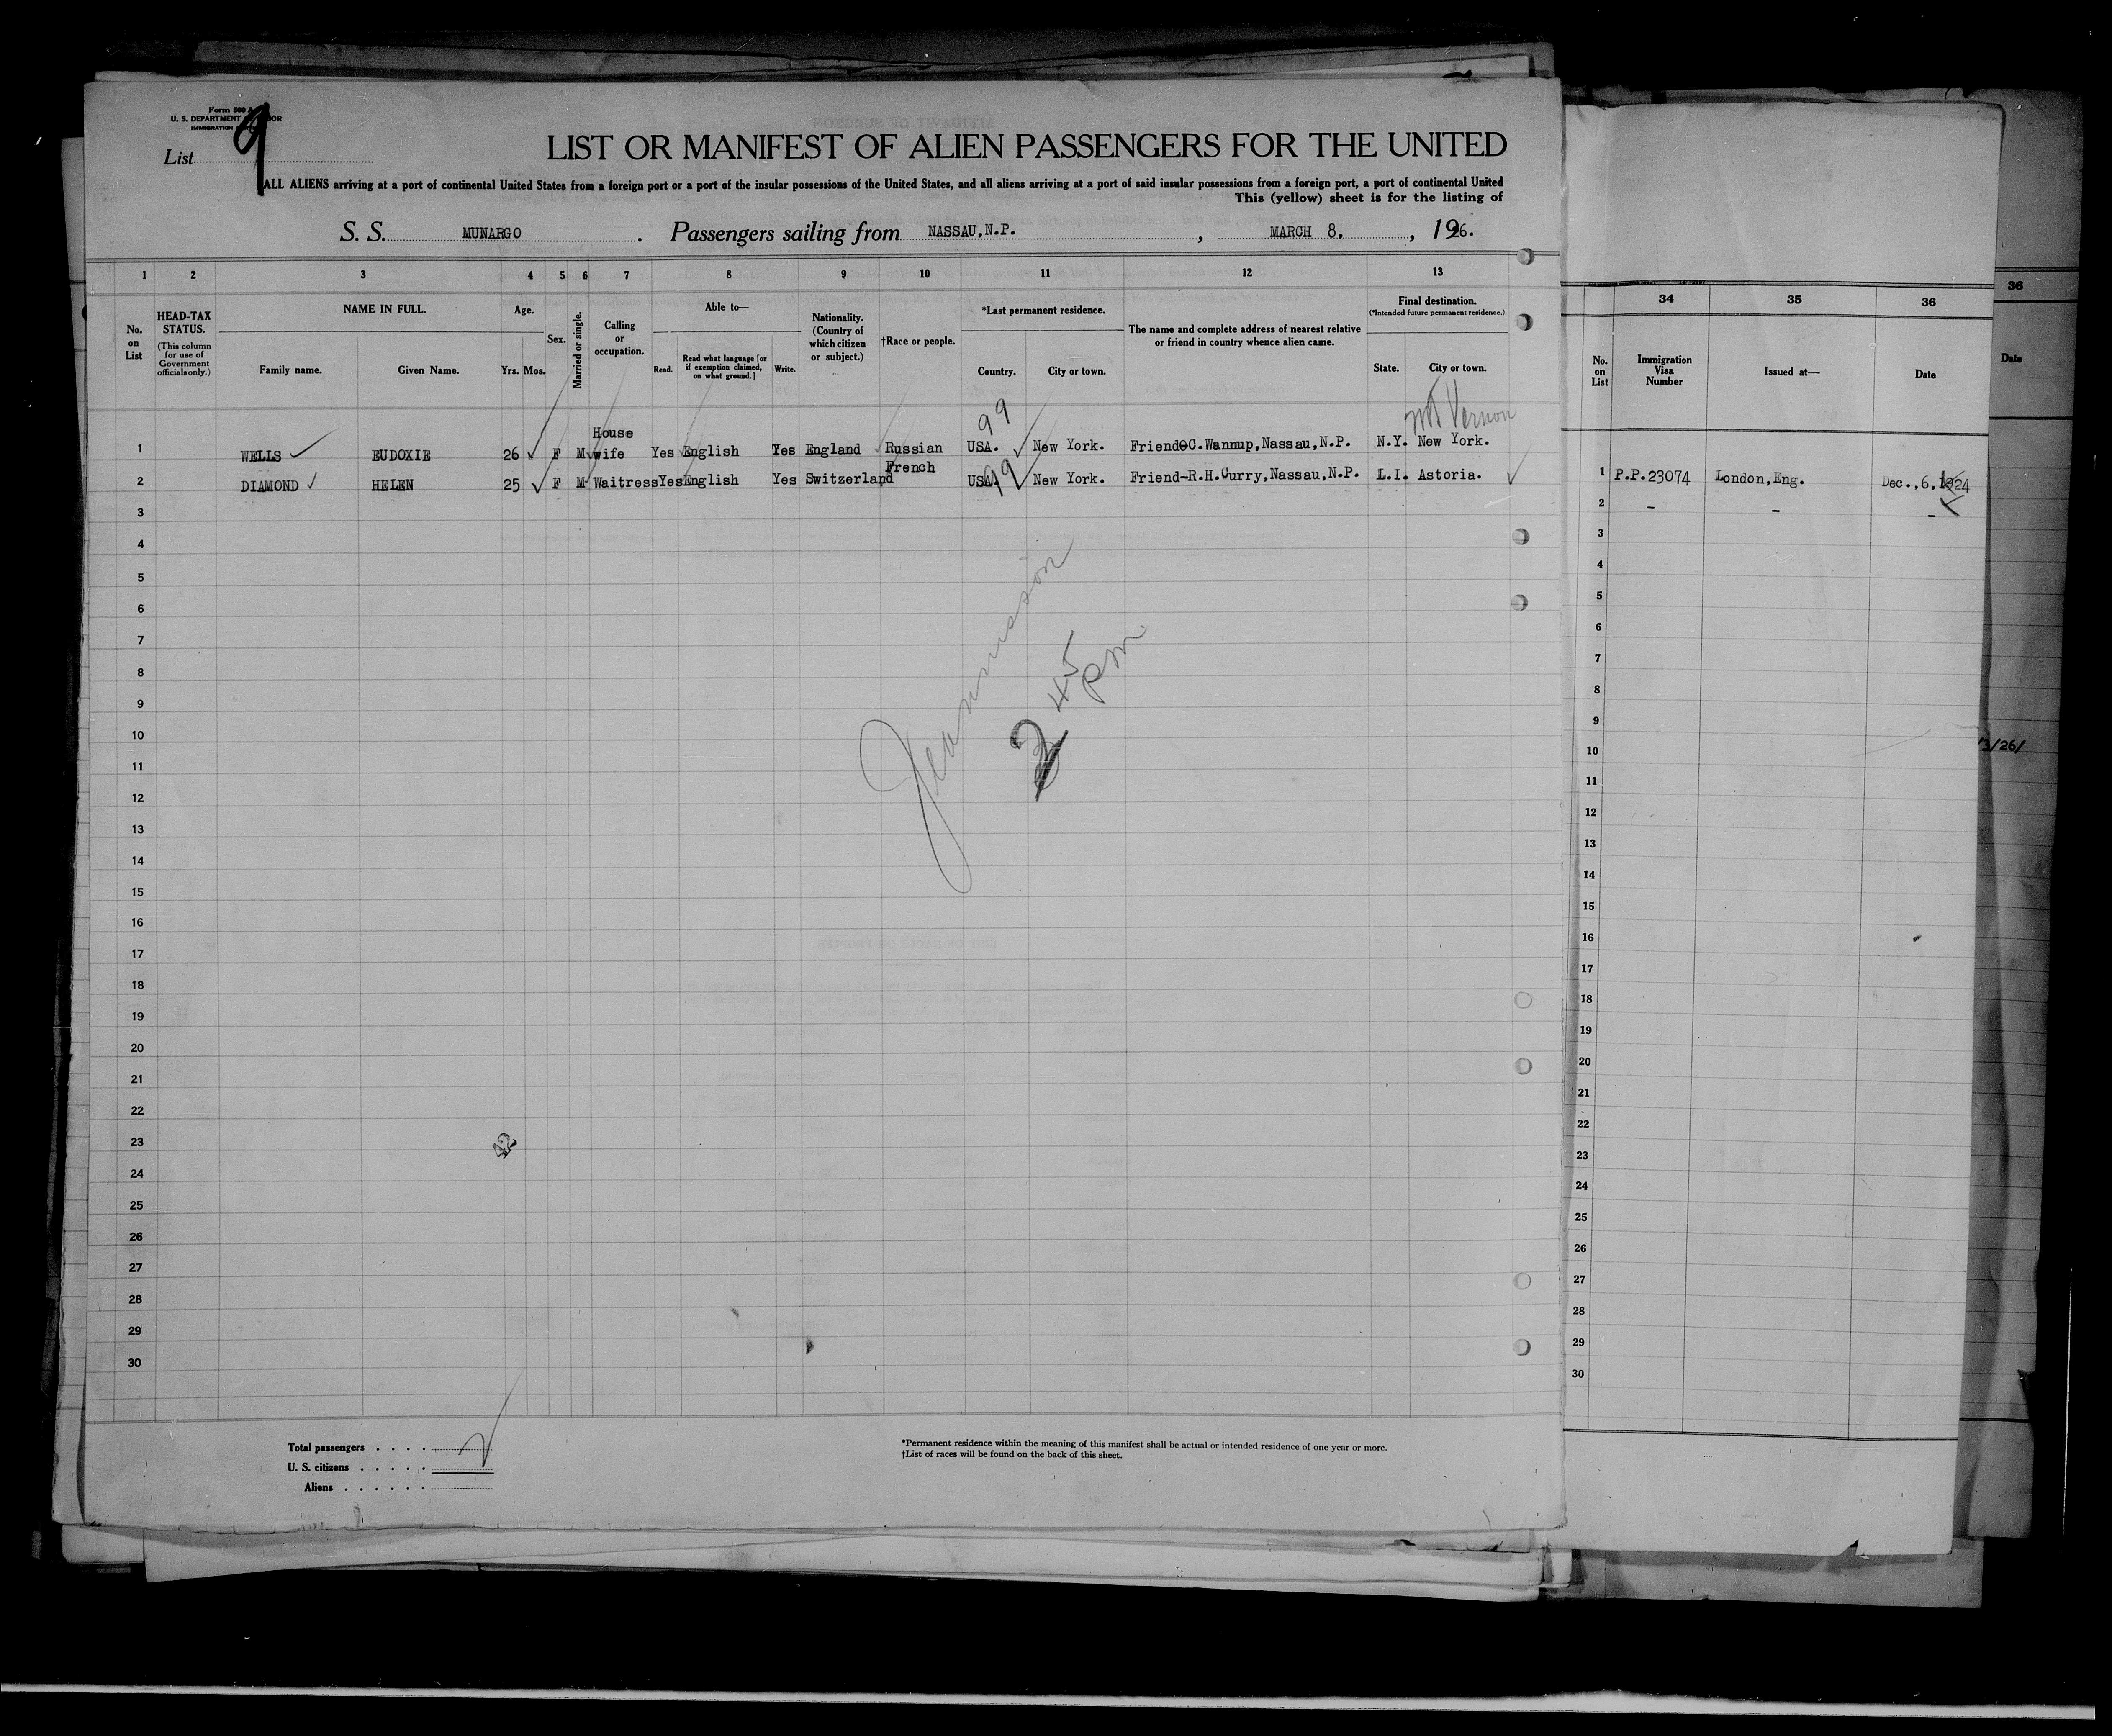 Form 500 A
U. S. DEPARTMENT OF LABOR
IMMIGRATION
List 9
LIST OR MANIFEST OF ALIEN PASSENGERS FOR THE UNITED
ALL ALIENS arriving at a port of continental United States from a foreign port or a port of the insular possessions of the United States, and all aliens arriving at a port of said insular possessions from a foreign port, a port of continental United
This (yellow) sheet is for the listing of
S. S. MUNARGO. Passengers sailing from NASSAU,N.P., MARCH 8., 1926.
1 2 3 4 5 6 7 8 9 10 11 12 13
No. on List
HEAD-TAX STATUS. (This column for use of Government officials only.)
NAME IN FULL.
Family name. Given Name.
Age.
Yrs. Mos.
Sex.
Married or single.
Calling or occupation.
Able to—
Read. Read what language [or if exemption claimed, on what ground.] Write.
Nationality. (Country of which citizen or subject.)
†Race or people.
*Last permanent residence.
Country. City or town.
The name and complete address of nearest relative or friend in country whence alien came.
Final destination.
(*Intended future permanent residence.)
State. City or town.
99 Mt Vernon
1 WELLS EUDOXIE 26 F M House wife Yes English Yes England Russian USA. New York. Friend-C.Wannup,Nassau,N.P. N.Y. New York.
2 DIAMOND HELEN 25 F M Waitress Yes English Yes Switzerland French USA. 99 New York. Friend-R.H.Curry,Nassau,N.P. L.I. Astoria.
3
4
5
6
7
8
9
10
11
12
13
14
15
16
17
18
19
20
21
22
23
24
25
26
27
28
29
30
2 45 pm
Total passengers . . . . 2
U. S. citizens . . . . .
Aliens . . . . . .
*Permanent residence within the meaning of this manifest shall be actual or intended residence of one year or more.
†List of races will be found on the back of this sheet.
34 35 36
No. on List
Immigration Visa Number
Issued at—
Date
1 P.P.23074 London,Eng. Dec.,6,1924
2 - - -
3
4
5
6
7
8
9
10
11
12
13
14
15
16
17
18
19
20
21
22
23
24
25
26
27
28
29
30
36
Date
3/26/